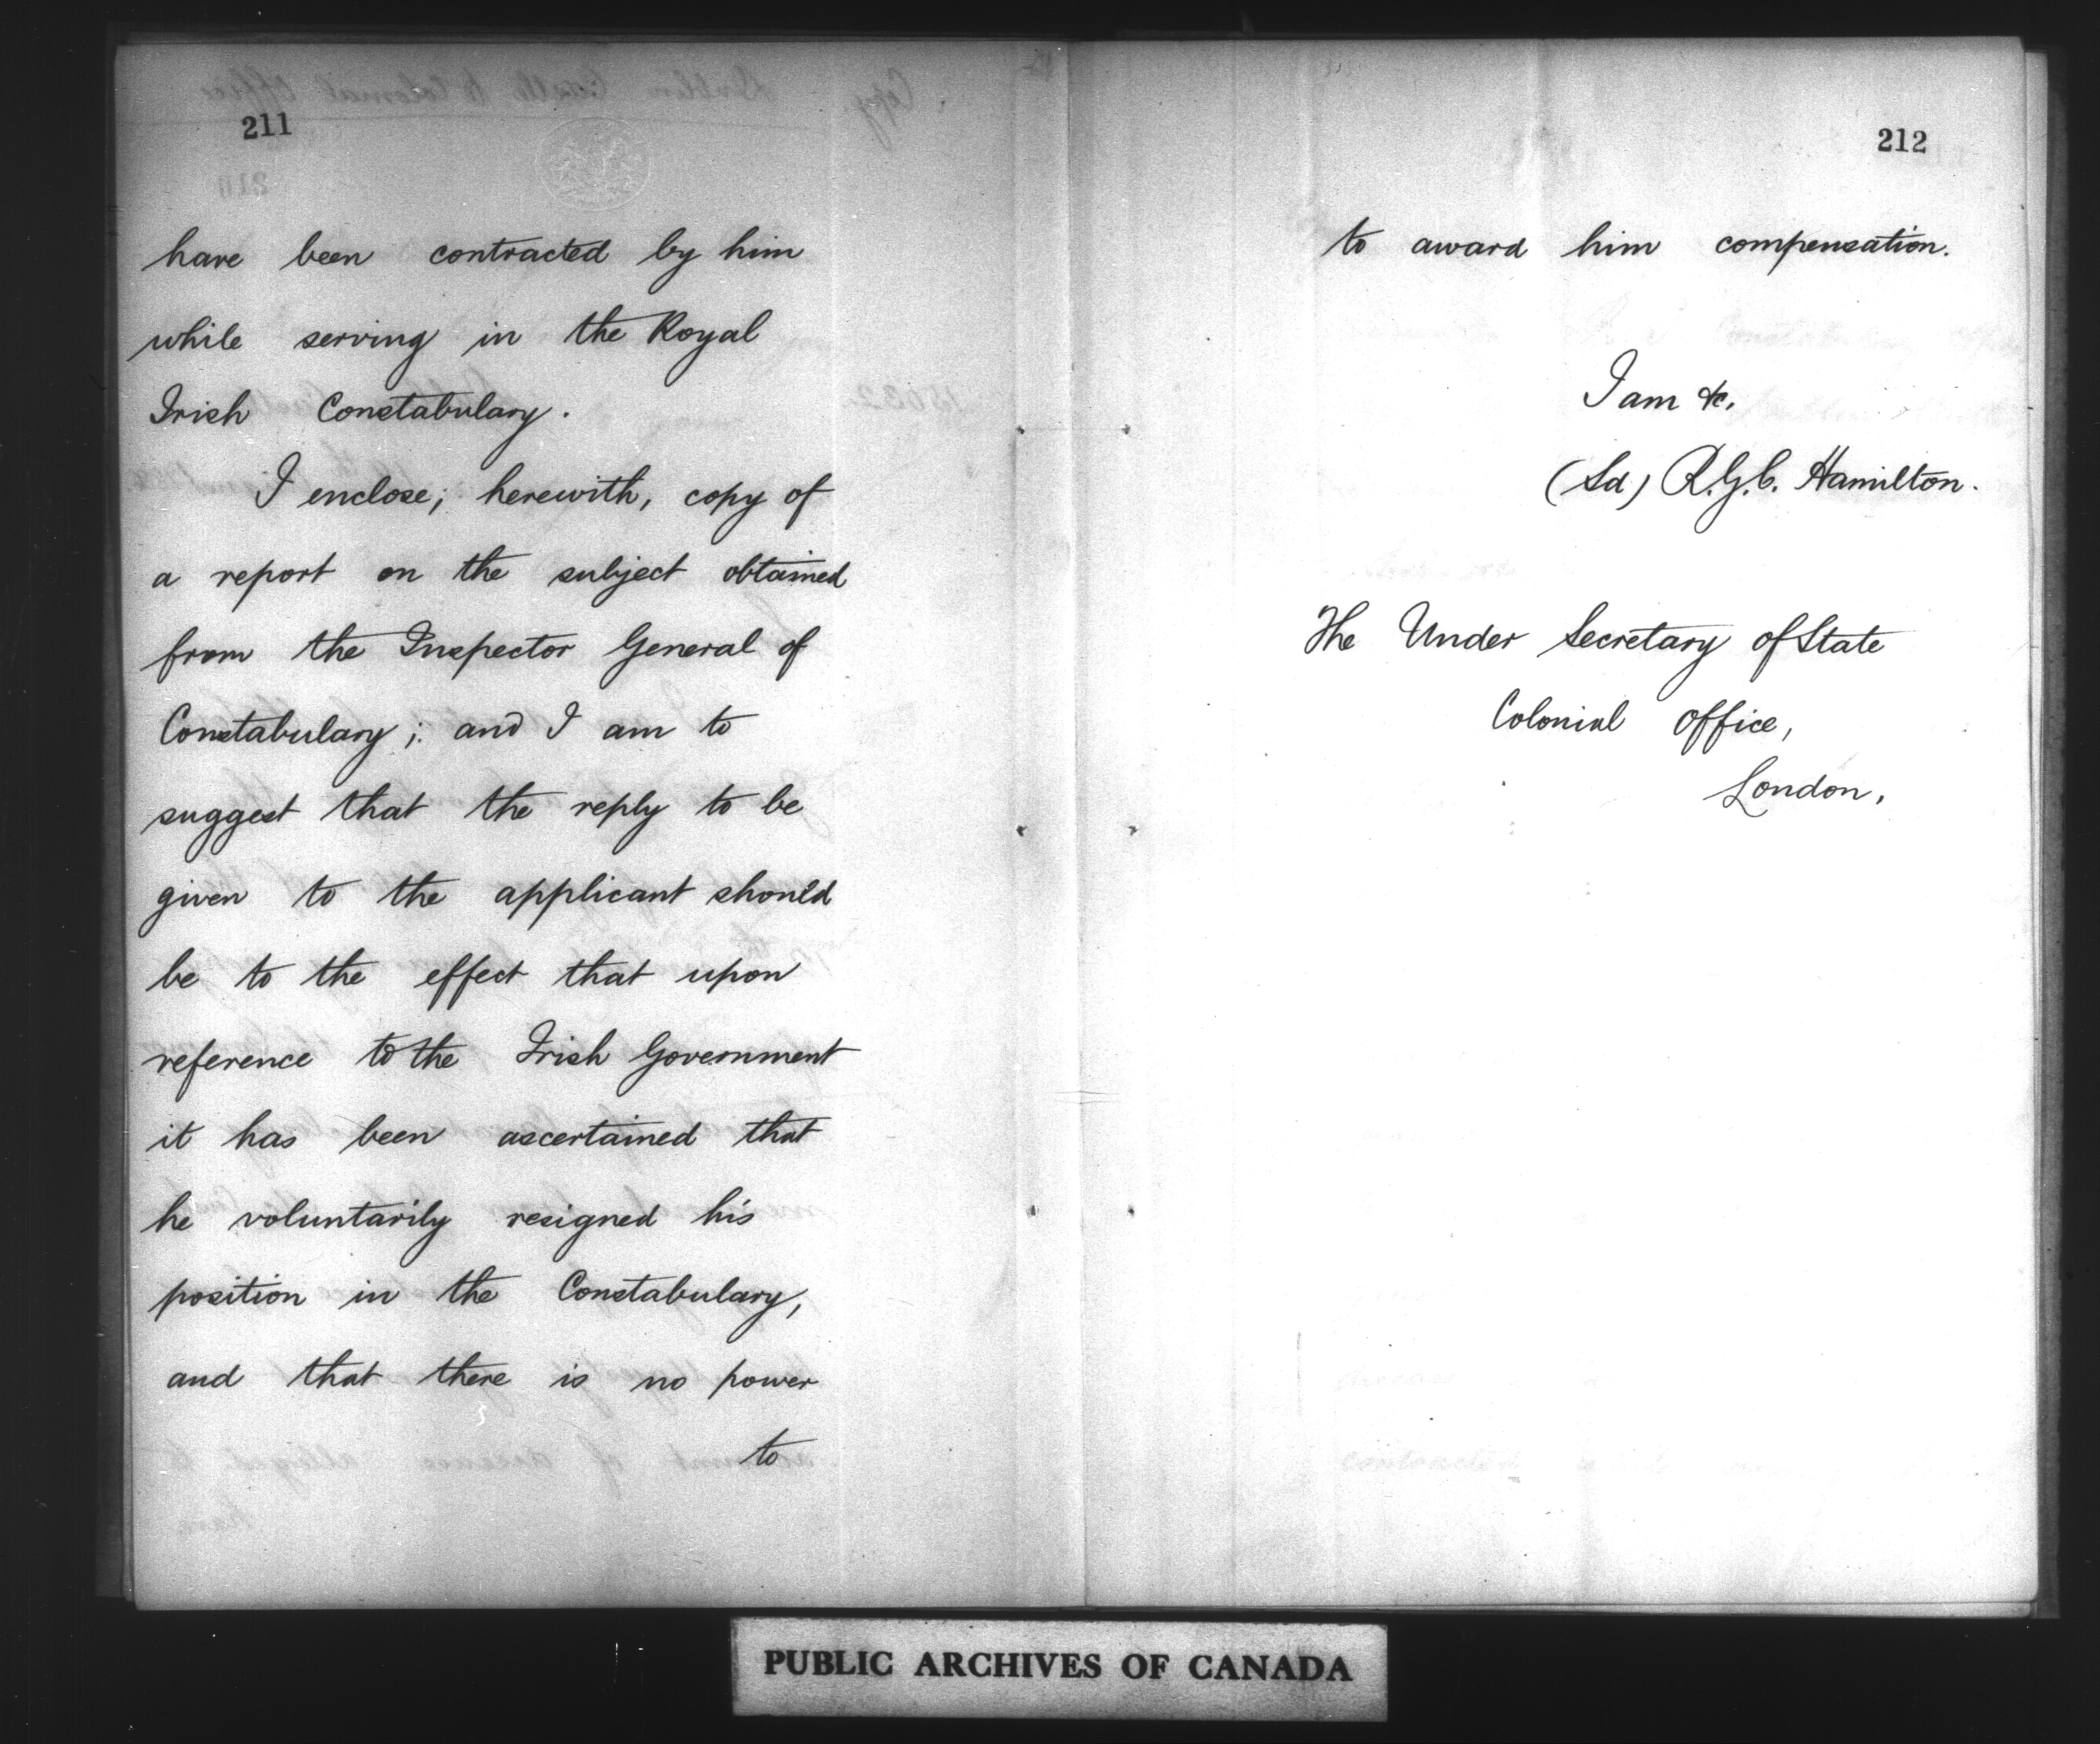 211
have been contracted by him
while serving in the Royal
Irish Constabulary.
I enclose, herewith, copy of
a report on the subject obtained
from the Inspector General of
Constabulary; and I am to
suggest that the reply to be
given to the applicant should
be to the effect that upon
reference to the Irish Government
it has been ascertained that
he voluntarily resigned his
position in the Constabulary,
and that there is no power
to
212
to award him compensation.
I am &c,
(Sd) R.G.C. Hamilton.
The Under Secretary of State
Colonial Office,
London,
PUBLIC ARCHIVES OF CANADA